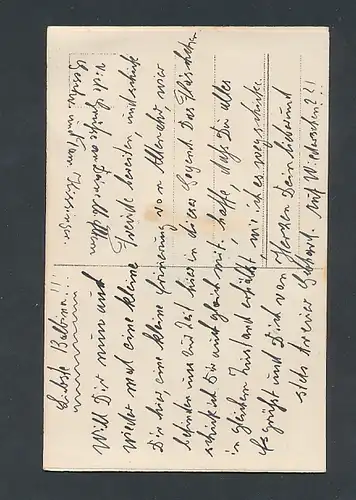 Liebste Balbina!!!
Will Dir nun auch
wieder mal eine kleine Freude bereiten und schicke
Dir hier, eine kleine Erinnerung von Altenahr, wir
befinden uns zur Zeit hier in dieser Gegend. Das
schicke ich Dir auch gleich mit, hoffe daß Du alles
in gleichen Zustand erhältst, wie ich es wegschicke.
Es grüßt und Dich von Herzen Dein lieber und
stets treuer Gerhard. Auf Wiedersehen?!!
Viele Grüße an Deine lb. Eltern
und Fam.